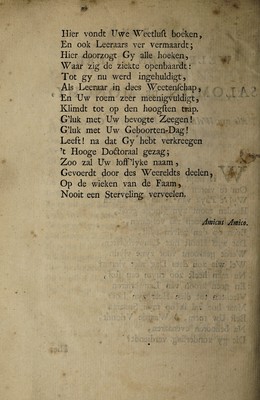 Hier vondt Uwe Weetlust boeken,
En ook Leeraars ver vermaardt;
Hier doorzogt Gy alle hoeken,
Waar zig de ziekte openbaardt:
Tot gy nu werd ingehuldigt,
Als Leeraar in dees Weetenschap,
En Uw roem zeer meenigvuldigt,
Klimdt tot op den hoogsten trap.
G'luk met Uw bevogte Zeegen!
G'luk met Uw Geboorten-Dag!
Leeft! na dat Gy hebt verkreegen
't Hooge Doctoraal gezag;
Zoo zal Uw loff'lyke naam,
Gevoerdt door des Weereldts deelen,
Op de wieken van de Faam,
Nooit een Sterveling verveelen.
Amicus Amico.